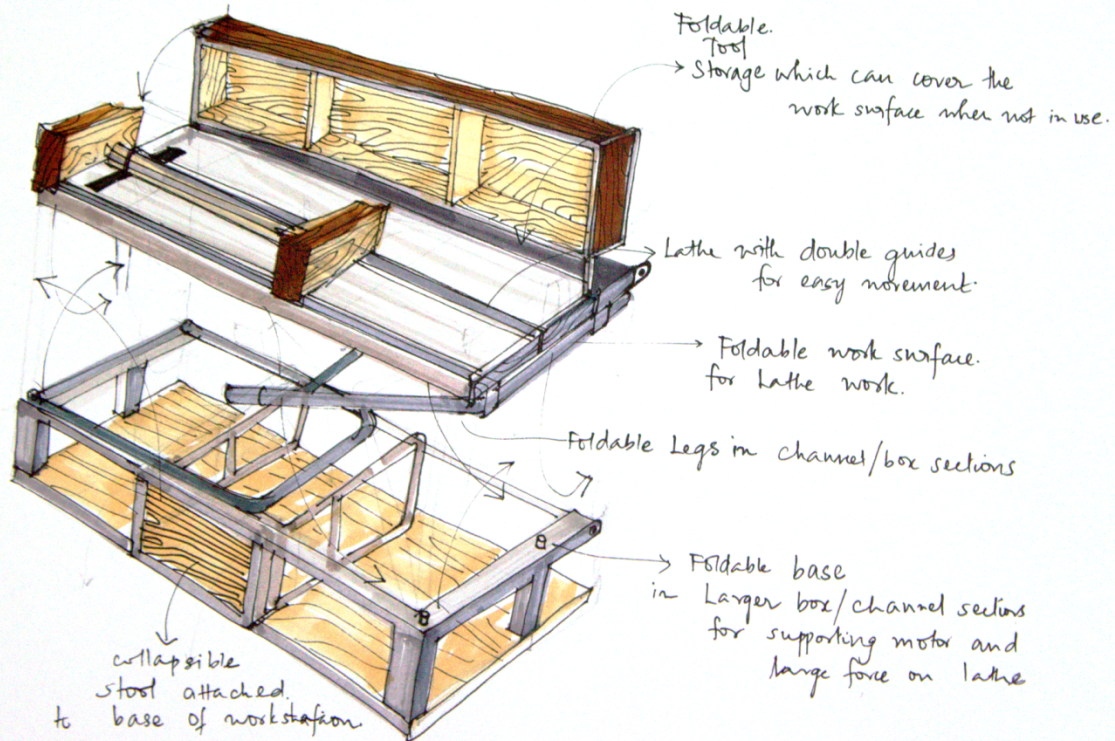 Foldable.
Tool
Storage which can cover the
work surface when not in use.
Lathe with double guides
for easy movement.
Foldable work surface.
for Lathe work.
Foldable Legs in channel/box sections
Foldable base
in Larger box/channel sections
for supporting motor and
large force on lathe
collapsible
stool attached.
to base of workstation.